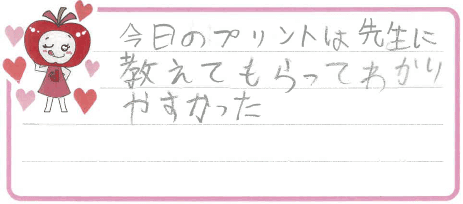 今日のプリントは先生に
教えてもらってわかり
やすかった